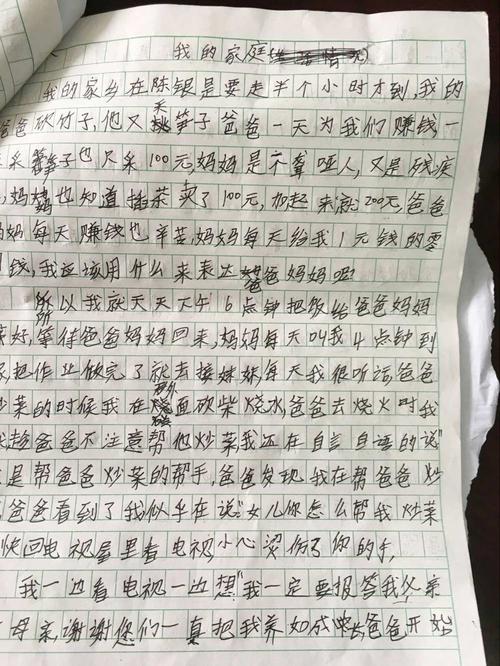 我的家庭
我的家乡在陈银是要走半个小时才到,我的
爸爸砍竹子,他又笋子爸爸一天为我们赚钱一
天采笋子也只采100元,妈妈是不聋哑人,又是残疾
,妈妈也知道插茶卖了100元,加起来就200元,爸爸
妈妈每天赚钱也辛苦,妈妈每天给我1元钱的零
钱,我应该用什么来表达爸爸妈妈呢?
所以我就天天下午6点钟把饭给爸爸妈妈
菜好,等待爸爸妈妈回来,妈妈每天叫我4点钟到
家,把作业做完了就去接妹妹,每天我很听话,爸爸
炒菜的时候我在面砍柴烧水,爸爸去烧火时我
就趁爸爸不注意帮他炒菜我还在自言自语的说"
我是帮爸爸炒菜的帮手,爸爸发现我在帮爸爸炒
爸爸看到了我似乎在说"女儿你怎么帮我炒菜
快回电视屋里看电视小心烫伤了你的手,
我一边看电视一边想"我一定要报答我父亲
母亲谢谢您们一直把我养如成长爸爸开始